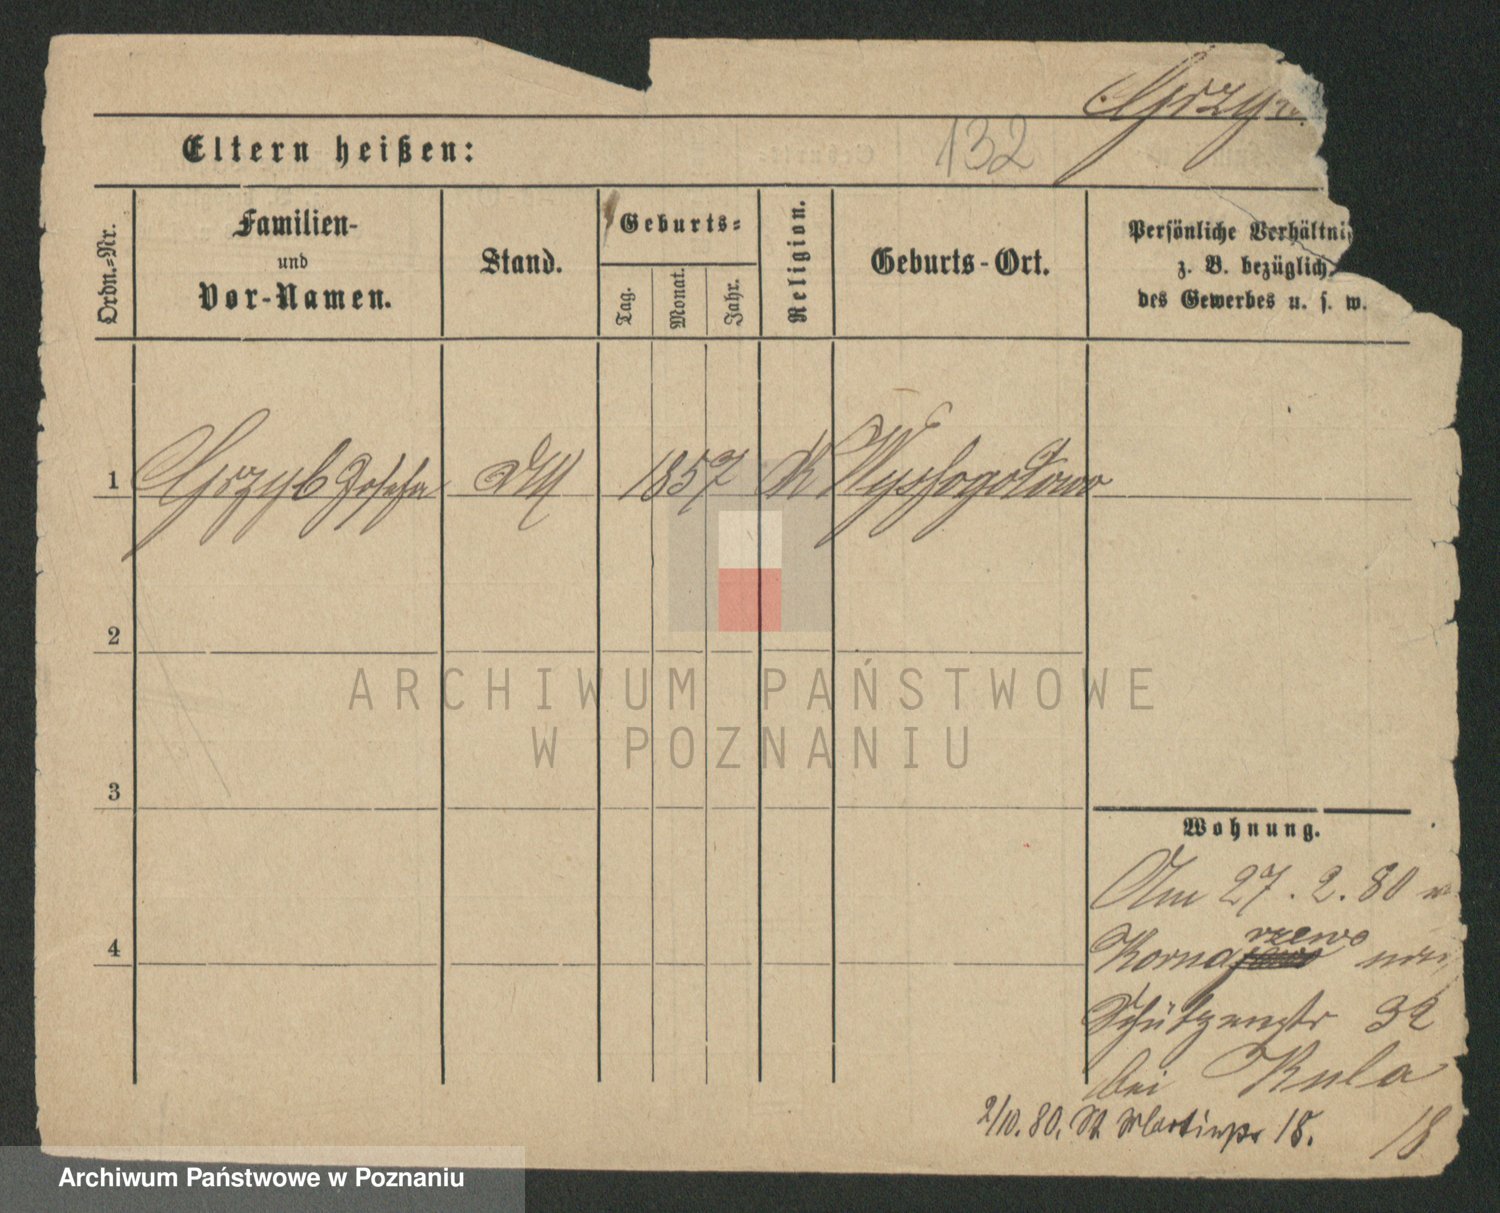 132
Eltern heißen:
Ordn.-Nr.
Familien-
und
Vor-Namen.
Stand.
Geburts-
Tag.
Monat.
Jahr.
Religion.
Geburts-Ort.
Persönliche Verhältni
z. B. bezüglich
des Gewerbes u. s. w.
1 Grzyb Josefa 1857 K Wyssogotowo
2
3
4
Wohnung.
Am 27. 2. 80
rzewo
Korna
Schützenstr 32
bei Kula
2/10. 80. St Martinstr 18.
18
ARCHIWUM PAŃSTWOWE
W POZNANIU
Archiwum Państwowe w Poznaniu